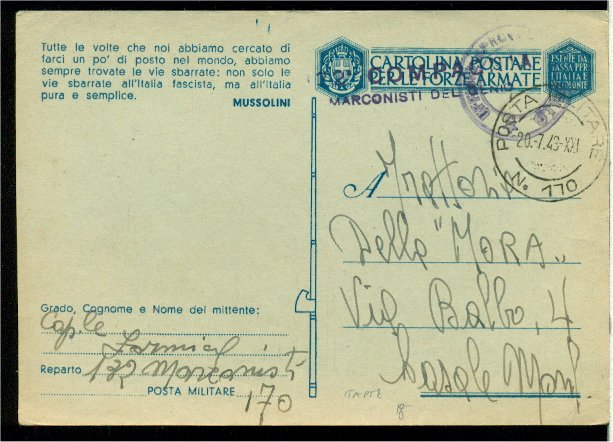 Tutte le volte che noi abbiamo cercato di
farci un po' di posto nel mondo, abbiamo
sempre trovate le vie sbarrate: non solo le
vie sbarrate all'Italia fascista, ma all'Italia
pura e semplice.
MUSSOLINI
CARTOLINA POSTALE
DELLE FORZE ARMATE
ESENTE DA
TASSA PER
L'ITALIA E
COLONIE
MARCONISTI DEL GENIO
POSTA MILITARE
20.7.43-XXI
N. 170
A Trattoria
Della "MORA"
Via Balbo, 4
Casale Monf.
Grado, Cognome e Nome del mittente:
Cap.le
Reparto
POSTA MILITARE
170
ITAPTZ